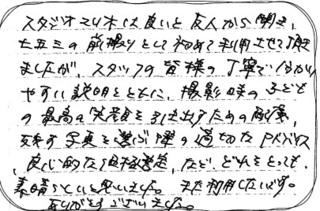 スタジオマリオは良いと友人から聞き、
七五三の前撮りとして初めて利用させて頂き
ましたが、スタッフの皆様の丁寧で分かり
やすい説明とともに、撮影時の子ども
の最高の笑顔を引き出すための配慮、
写真を選ぶ際の適切なアドバイス
良心的な価格、など、どれをとっても
素晴らしいと思いました。また利用したいです。
ありがとうございました。